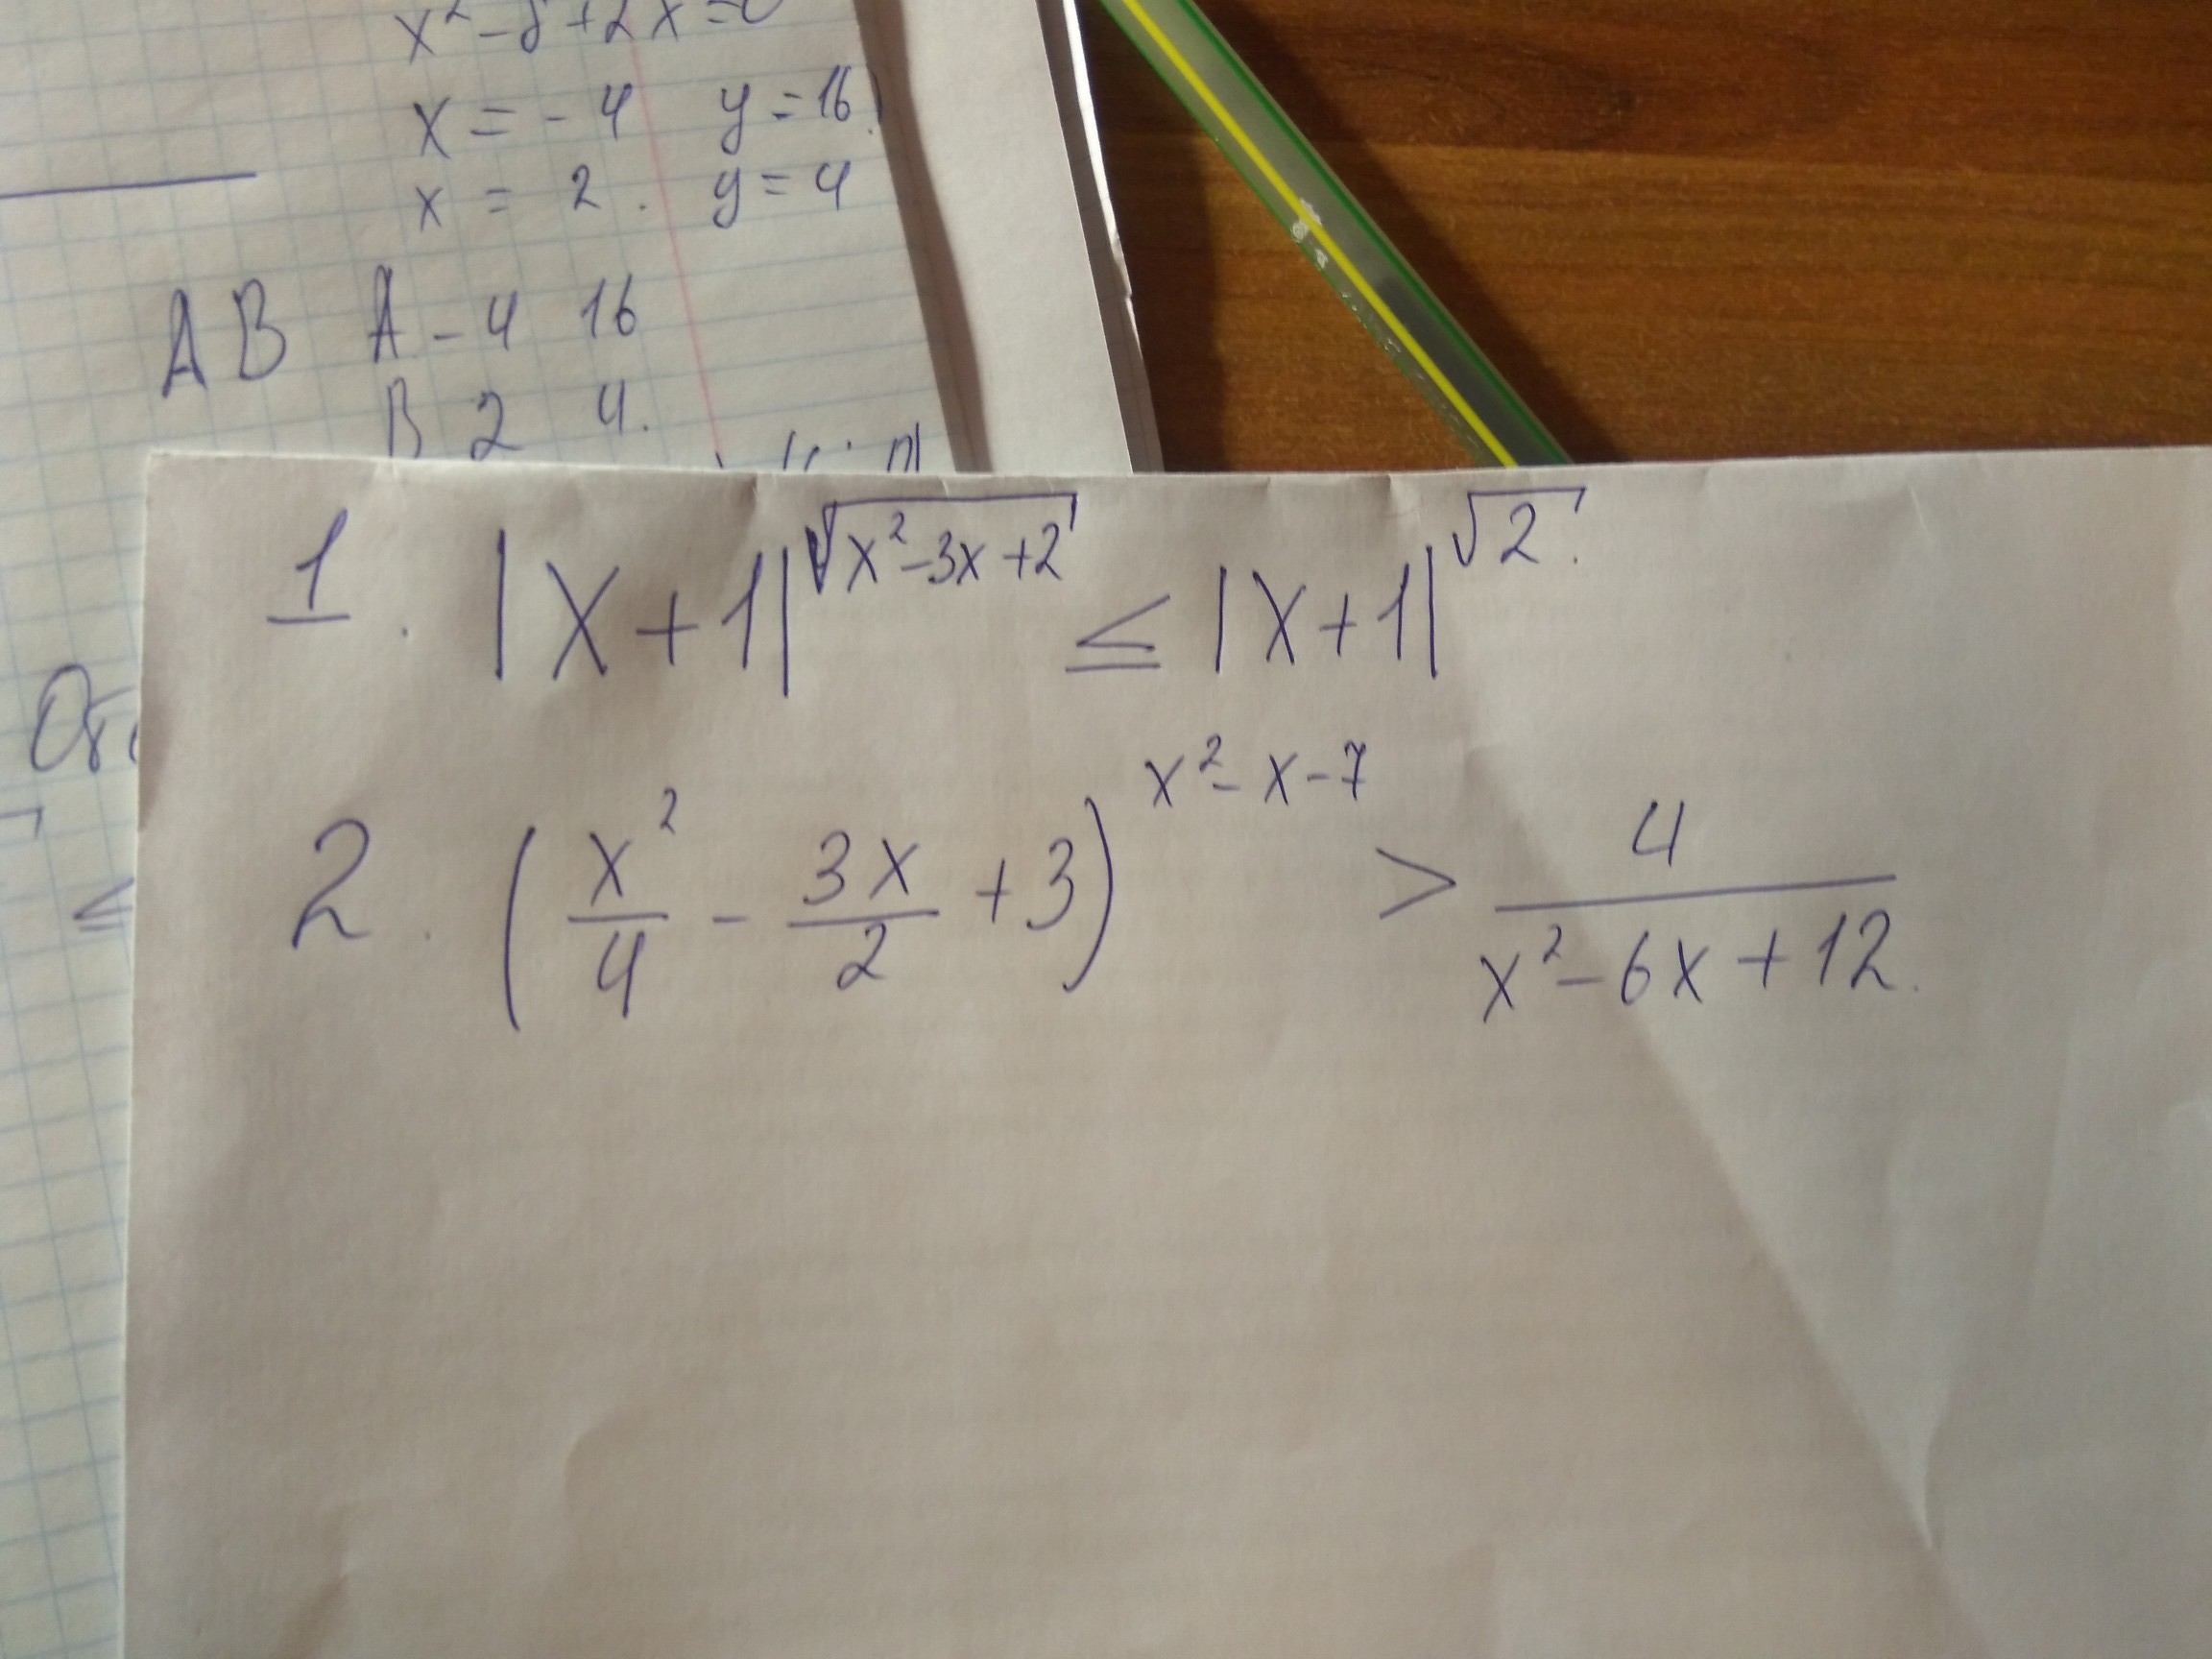 x² - 8 + 2x = 0
x = - 4 y = 16
x = 2. y = 4
AB A - 4 16
B 2 4.
1. |x+1|^√(x²-3x+2) ≤ |x+1|^√2.
2. (x²/4 - 3x/2 + 3)^(x²-x-7) > 4/(x²-6x+12).
≤